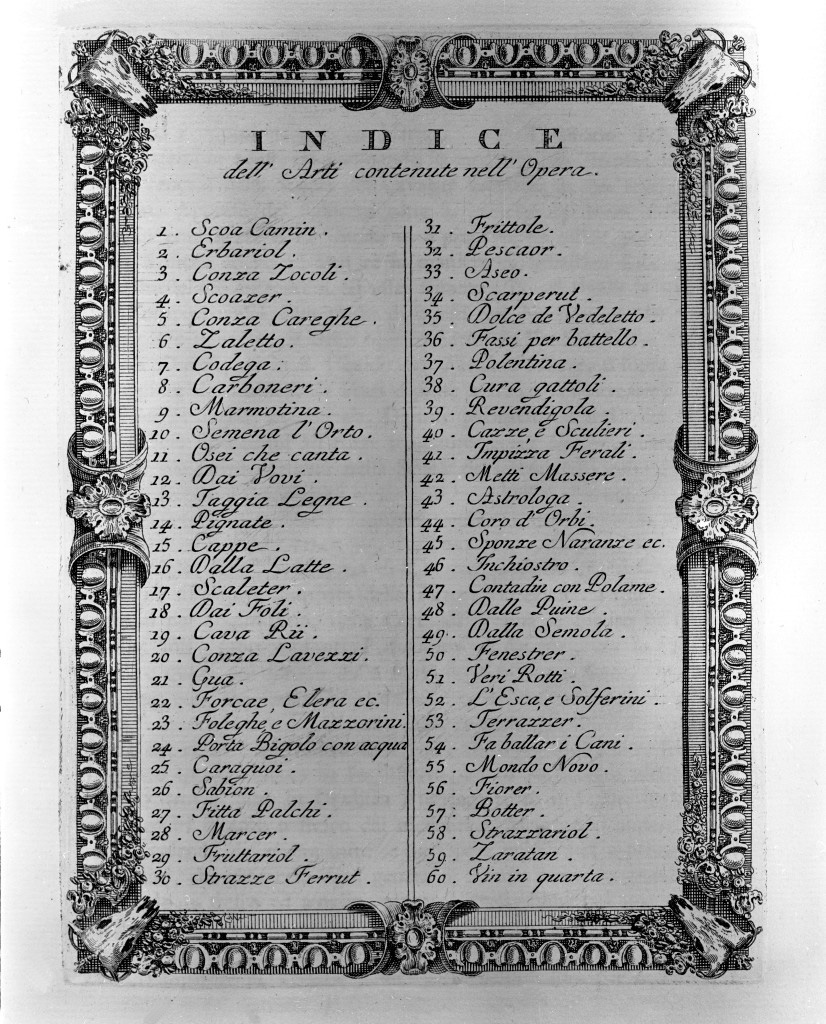 INDICE
dell' Arti contenute nell' Opera.
1 . Scoa Camin .
2 . Erbariol .
3 . Conza Zocoli .
4 . Scoazer .
5 . Conza Careghe .
6 . Zaletto .
7 . Codega .
8 . Carboneri .
9 . Marmotina .
10 . Semena l'Orto .
11 . Osei che canta .
12 . Dai Vovi .
13 . Taggia Legne .
14 . Pignate .
15 . Cappe .
16 . Dalla Latte .
17 . Scaleter .
18 . Dai Foli .
19 . Cava Rii .
20 . Conza Lavezzi .
21 . Gua .
22 . Forcae, Elera ec.
23 . Foleghe, e Mazzorini.
24 . Porta Bigolo con acqua
25 . Caraguoi .
26 . Sabion .
27 . Fitta Palchi .
28 . Marcer .
29 . Fruttariol .
30 . Strazze Ferrut .
31 . Frittole .
32 . Pescaor .
33 . Aseo .
34 . Scarperut .
35 . Dolce de Vedeletto .
36 . Fassi per battello .
37 . Polentina .
38 . Cura gattoli .
39 . Revendigola .
40 . Cazze, e Sculieri .
41 . Impizza Ferali .
42 . Metti Massere .
43 . Astrologa .
44 . Coro d'Orbi .
45 . Sponze Naranze ec.
46 . Inchiostro .
47 . Contadin con Polame .
48 . Dalle Puine .
49 . Dalla Semola .
50 . Fenestrer .
51 . Veri Rotti .
52 . L'Esca, e Solferini .
53 . Terrazzer .
54 . Fa ballar i Cani .
55 . Mondo Novo .
56 . Fiorer .
57 . Botter .
58 . Strazzariol .
59 . Zaratan .
60 . Vin in quarta .